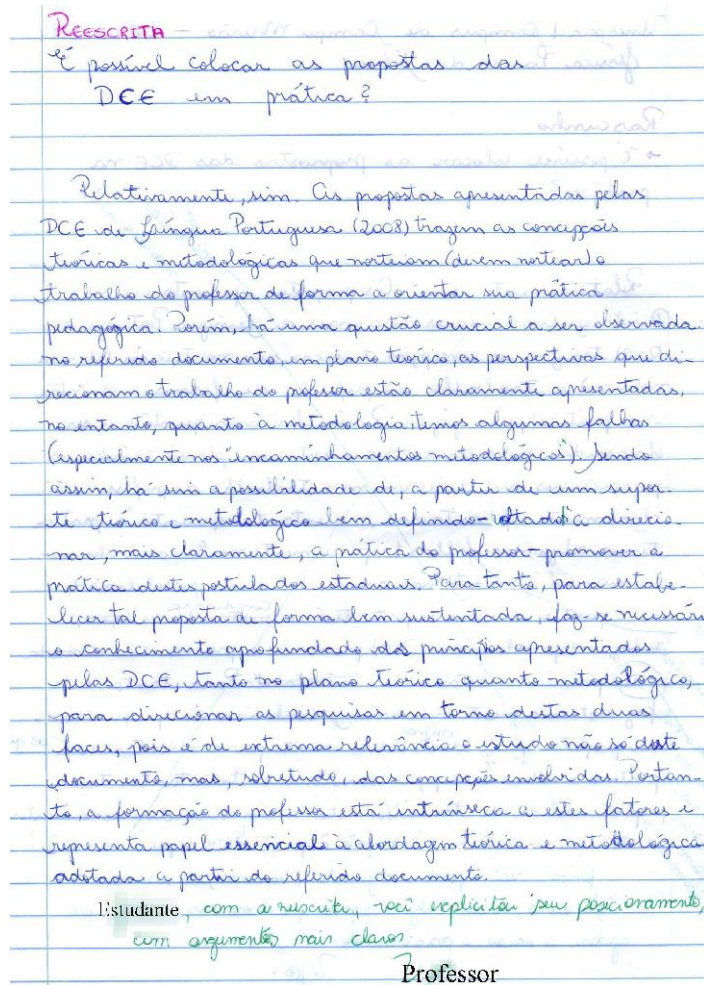 REESCRITA
É possível colocar as propostas das
DCE em prática?
Relativamente, sim. As propostas apresentadas pelas
DCE de Língua Portuguesa (2008) trazem as concepções
teóricas e metodológicas que norteiam (devem nortear) o
trabalho do professor de forma a orientar sua prática
pedagógica. Porém, há uma questão crucial a ser observada:
no referido documento, em plano teórico, as perspectivas que di-
recionam o trabalho do professor estão claramente apresentadas,
no entanto, quanto à metodologia, temos algumas falhas
(especialmente nos "encaminhamentos metodológicos"). Sendo
assim, há sim a possibilidade de, a partir de um supor-
te teórico e metodológico bem definido - voltado a direcio-
nar, mais claramente, a prática do professor - promover a
prática destes postulados estaduais. Para tanto, para estabe-
lecer tal proposta de forma bem sustentada, faz-se necessário
o conhecimento aprofundado dos princípios apresentados
pelas DCE, tanto no plano teórico quanto metodológico,
para direcionar as pesquisas em torno destas duas
faces, pois é de extrema relevância o estudo não só deste
documento, mas, sobretudo, das concepções envolvidas. Portan-
to, a formação do professor está intrínseca a estes fatores e
representa papel essencial à abordagem teórica e metodológica
adotada a partir do referido documento.
Estudante, com a reescrita, você explicitou seu posicionamento,
com argumentos mais claros.
Professor